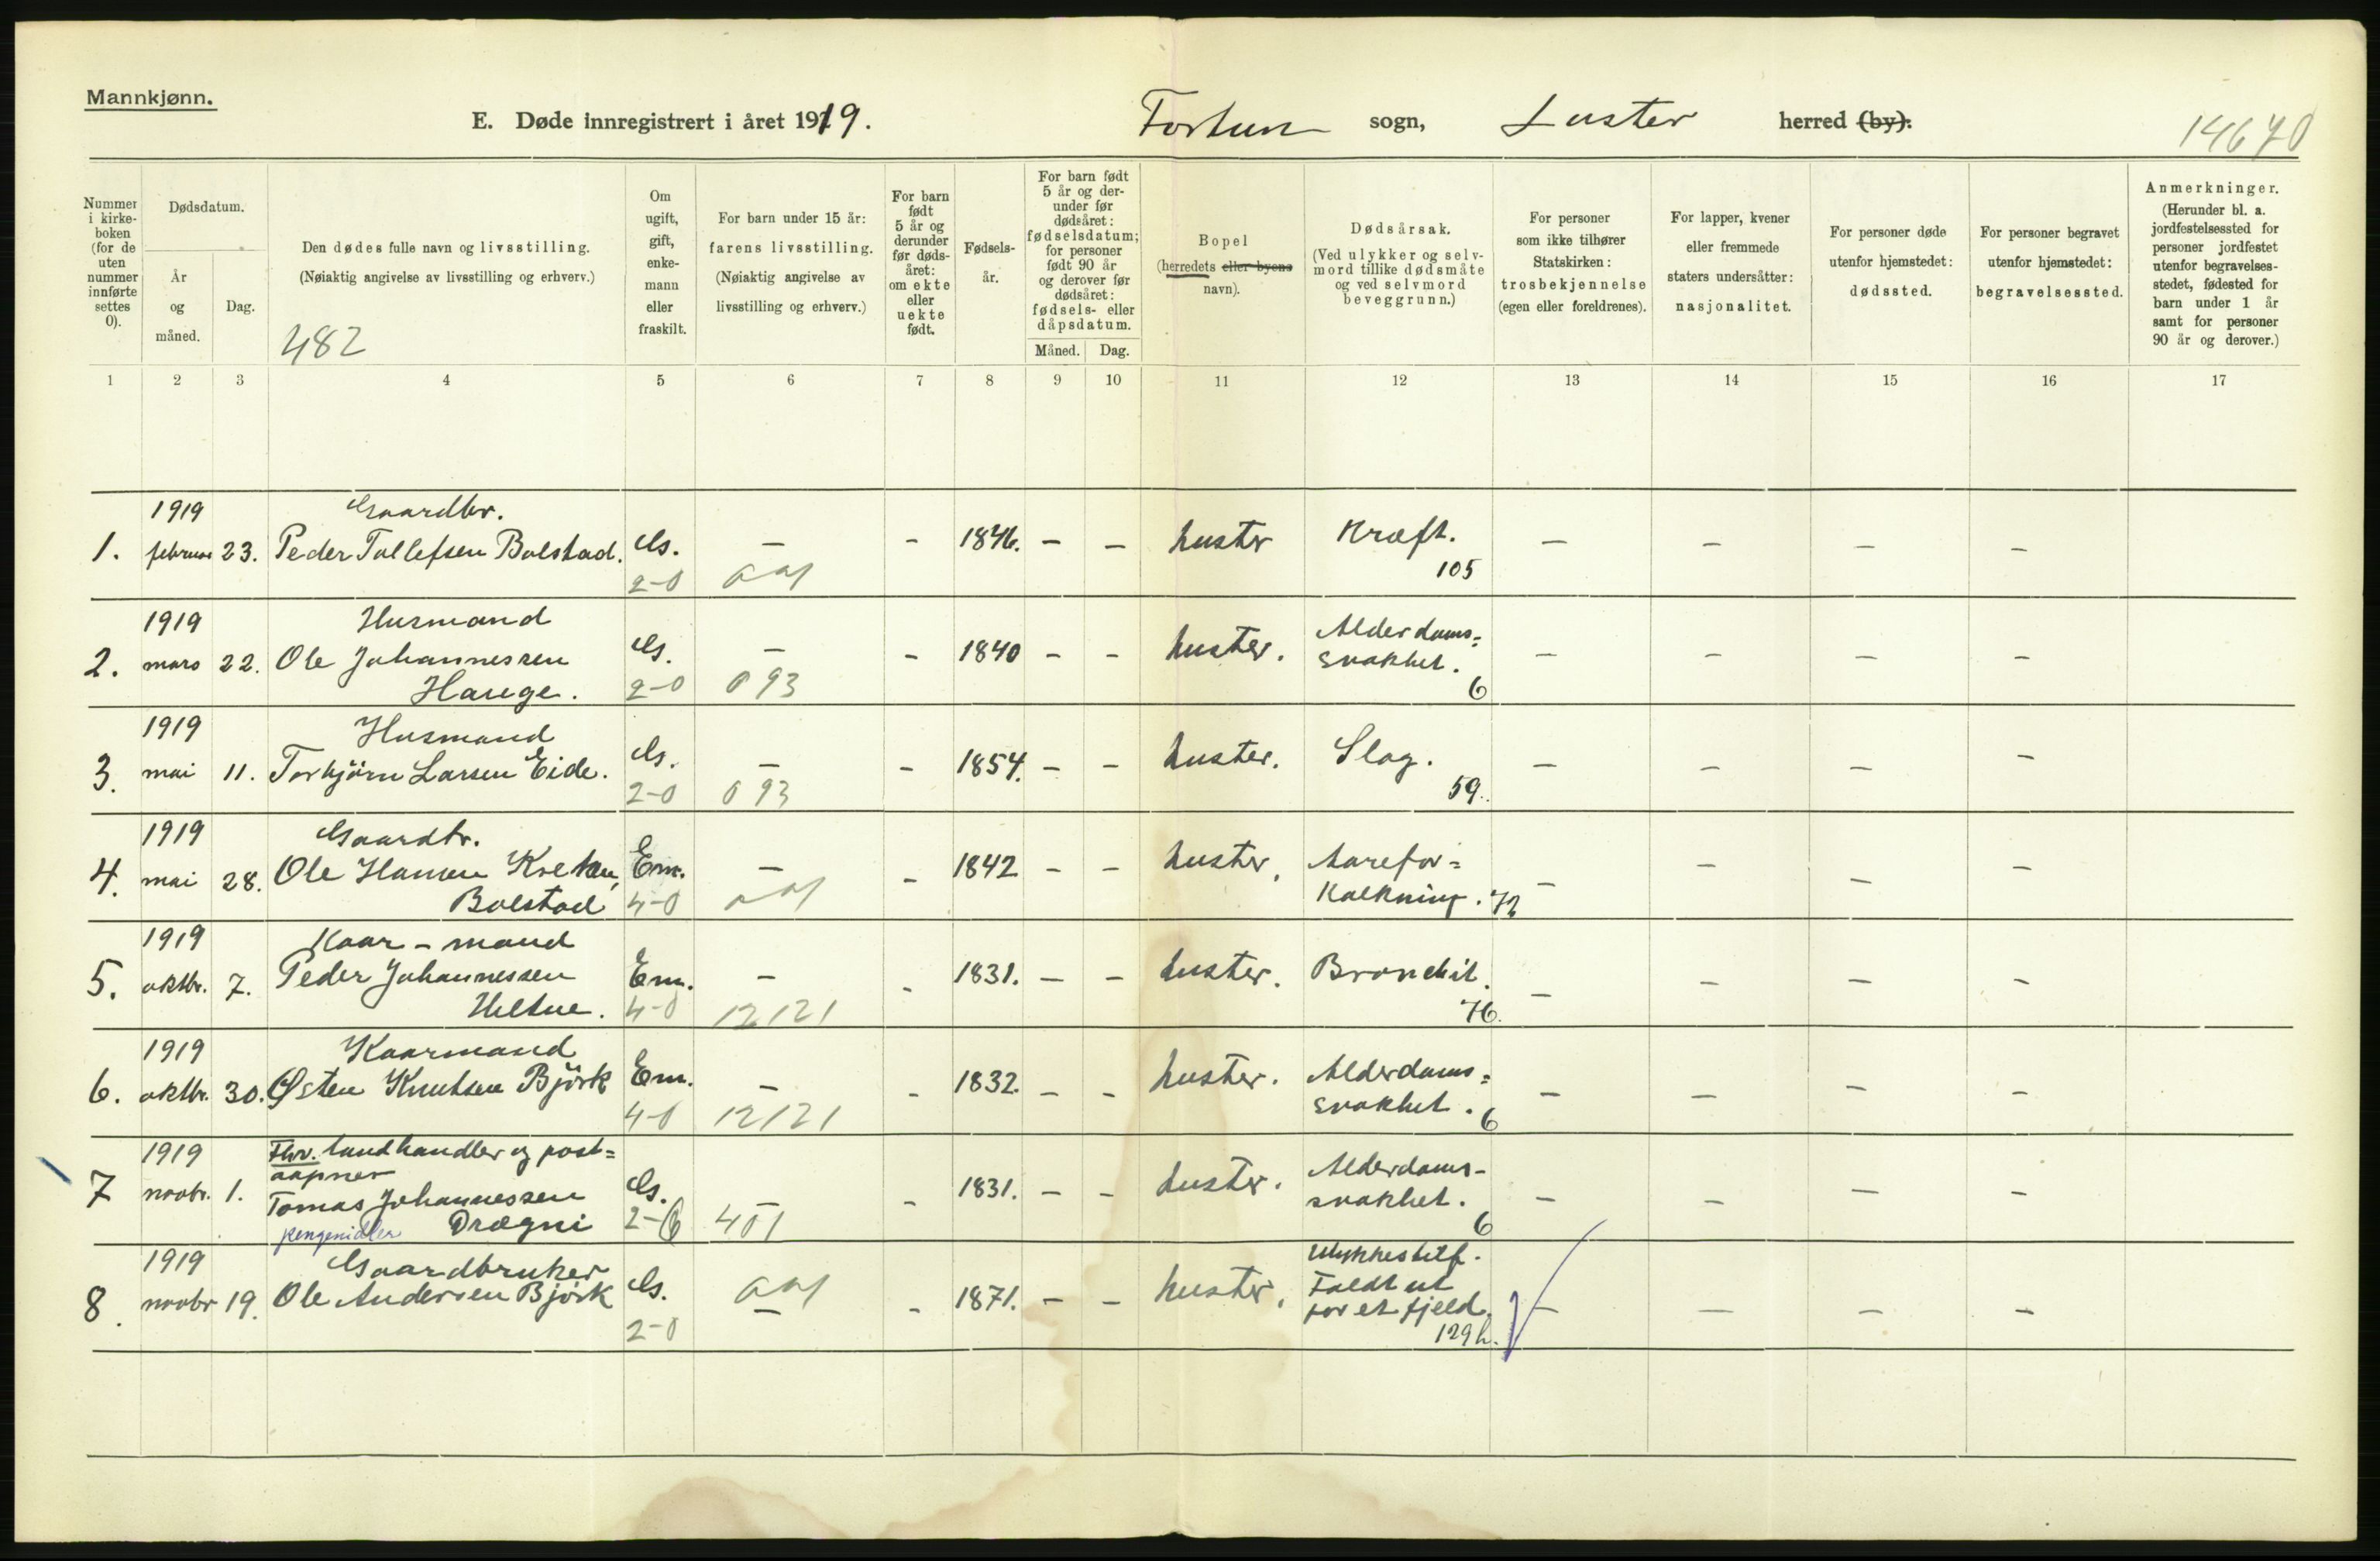 Mannkjønn.
E. Døde innregistrert i året 1919.
Fortun sogn, Luster herred (by).
14670
Nummer i kirke-boken (for de uten nummer innførte settes 0).
Dødsdatum.
År og måned.
Dag.
Den dødes fulle navn og livsstilling.
(Nøiaktig angivelse av livsstilling og erhverv.)
482
Om ugift, gift, enke-mann eller fraskilt.
For barn under 15 år:
farens livsstilling.
(Nøiaktig angivelse av livsstilling og erhverv.)
For barn født 5 år og derunder før døds-året: om ekte eller uekte født.
Fødsels-år.
For barn født 5 år og der-under før dødsåret: fødselsdatum; for personer født 90 år og derover før dødsåret: fødsels- eller dåpsdatum.
Måned. Dag.
Bopel
(herredets eller byens navn).
Dødsårsak.
(Ved ulykker og selv-mord tillike dødsmåte og ved selvmord beveggrunn.)
For personer som ikke tilhører Statskirken: trosbekjennelse (egen eller foreldrenes).
For lapper, kvener eller fremmede staters undersåtter: nasjonalitet.
For personer døde utenfor hjemstedet: dødssted.
For personer begravet utenfor hjemstedet: begravelsessted.
Anmerkninger.
(Herunder bl. a. jordfestelsessted for personer jordfestet utenfor begravelses-stedet, fødested for barn under 1 år samt for personer 90 år og derover.)
1 2 3 4 5 6 7 8 9 10 11 12 13 14 15 16 17
1919 Gaardbr.
1. februar 23. Peder Tollefsen Bolstad. G. – – 1846. – – Luster Kræft. – – – –
2-0 105
1919 Husmand Alderdoms=
2. mars 22. Ole Johannessen G. – – 1840 – – Luster. svakhet. – – – –
Hauge. 2-0 093 6
1919 Husmand
3. mai 11. Torbjörn Larsen Eide. G. – – 1854. – – Luster. Slag. – – – –
2-0 093 59.
1919 Gaardbr.
4. mai 28. Ole Hansen Em. – – 1842 – – Luster. Aarefor= – – – –
Bolstad 4-0 kalkning. 72
1919 Kaar-mand
5. oktbr. 7. Peder Johannessen Em. – – 1831. – – Luster. Bronchit. – – – –
Heltne. 4-0 12121 76.
1919 Kaarmand
6. oktbr. 30. Østen Knutsen Björk Em. – – 1832. – – Luster. Alderdoms= – – – –
4-0 12121 svakhet. 6
1919 Fhv. landhandler og post=
aapner
7 novbr. 1. Tomas Johannessen G. – – 1831. – – Luster. Alderdoms- – – – –
Drægni 2-6 401 svakhet. 6
1919 Gaardbruker Ulykkestilf.
8. novbr 19. Ole Andersen Björk G. – – 1871. – – Luster. Faldt ut – – – –
2-0 for et fjeld.
129 h.